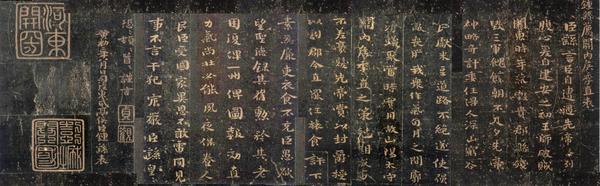 薦關內侯季直表
臣繇言臣自遭遇先帝忝列
腹心爰自建安之初王師破賊
關東時年荒穀貴郡縣殘
毀三軍餽饟朝不及夕先帝
神略奇計委任得人深山窮谷
民獻米豆道路不絕遂使強
敵喪膽我眾作氣旬月之間廓
清蟻聚當時實用故山陽太守
關內侯季直之策剋期成事
不差豪髮先帝賞以封爵授
以劇郡今直罷任旅食許下
素為廉吏衣食不充臣愚欲
望聖德錄其舊勳矜其老
困復俾一州俾圖報效直
力氣尚壯必能夙夜保養人
民臣受國家異恩不敢雷同見
事不言干犯宸嚴臣繇皇恐
皇恐頓首頓首謹言
貞觀
黃初二年八月日司徒東武亭侯臣鍾繇表
河東